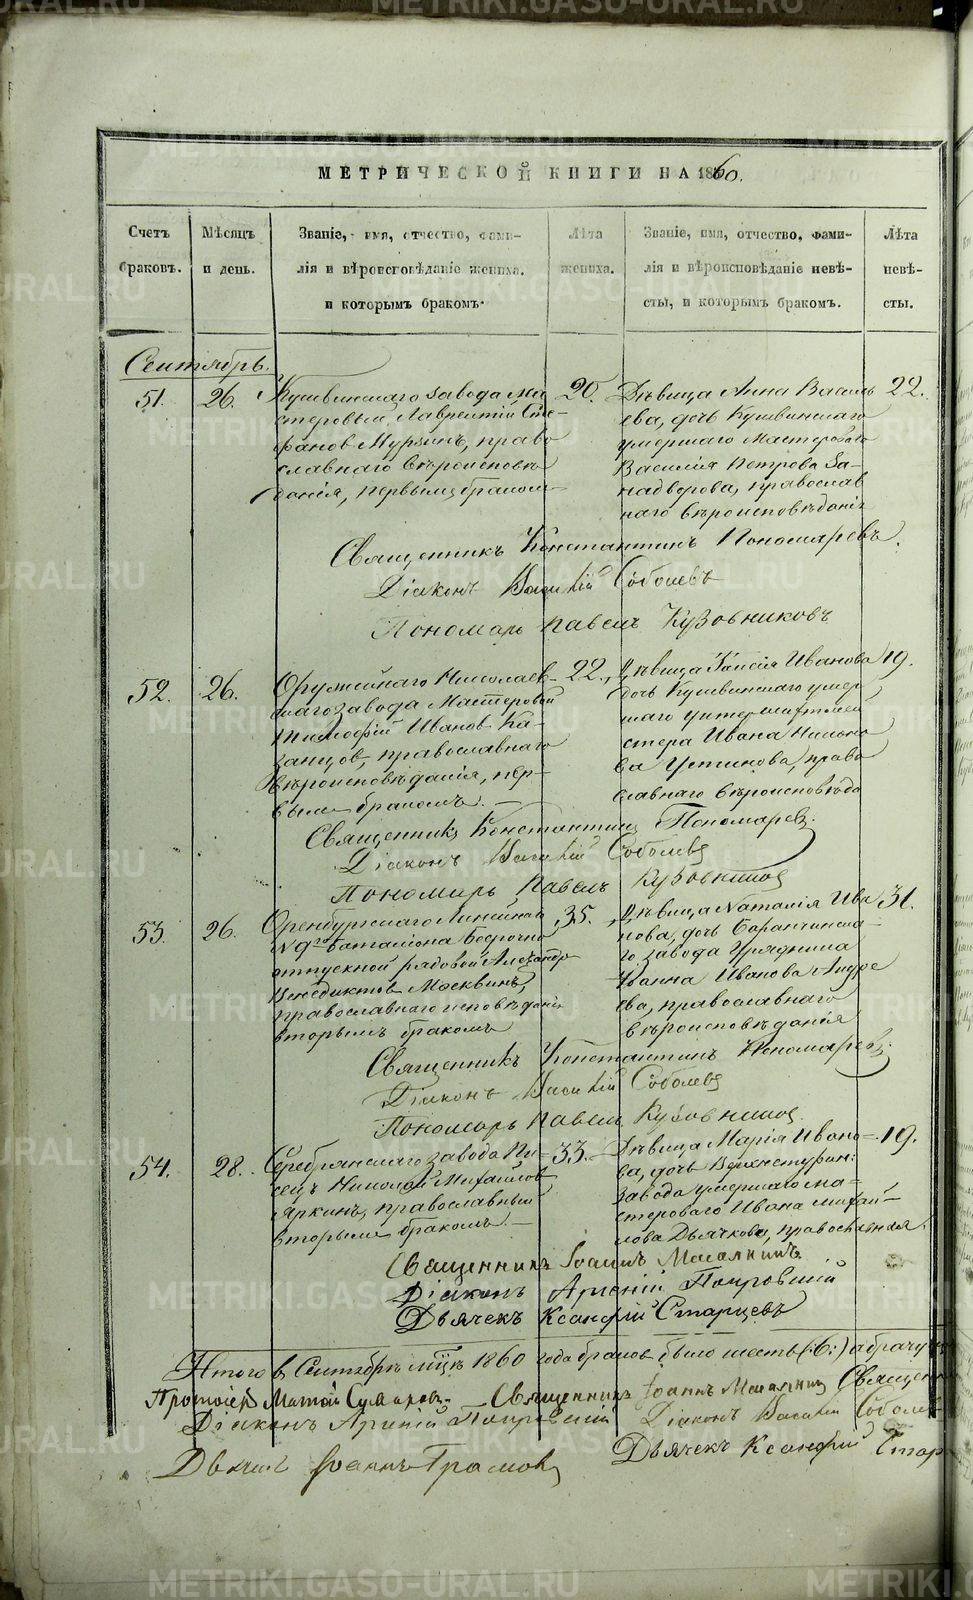 МЕТРИЧЕСКОЙ КНИГИ НА 1860.
Счетъ браковъ.
Мѣсяцъ и день.
Званіе, имя, отчество, фами-
лія и вѣроисповѣданіе жениха,
и которымъ бракомъ.
Лѣта жениха.
Званіе, имя, отчество, фами-
лія и вѣроисповѣданіе невѣ-
сты, и которымъ бракомъ.
Лѣта
невѣ-
сты.
Сентябрь.
51. 26.
Кушвинскаго завода Ма-
стеровый Лаврентій Сте-
фановъ Мурзинъ, право
славнаго вѣроисповѣ
данія, первымъ бракомъ
20.
Дѣвица Анна Василь
ева, дочь Кушвинскаго
умершаго Мастероваго
Василія Петрова За-
надворова, православ
наго вѣроисповѣданія
22.
Священникъ Константинъ Пономаревъ.
Діаконъ Василій Соболевъ
Пономарь Павелъ Кузовниковъ
52. 26.
Оружейнаго Николаев-
скаго завода Мастеровой
Тимофей Иванов Ка-
занцов, православнаго
вѣроисповѣданія, пер-
вымъ бракомъ.
22.
Дѣвица Таисія Иванова
дочь Кушвинскаго умер
шаго унтершихтмей
стера Ивана
ва Устинова, право
славнаго вѣроисповѣда
19.
Священникъ Константинъ Пономаревъ.
Діаконъ Василій Соболевъ
Пономарь Павелъ Кузовниковъ
53. 26.
Оренбургскаго Линейнаго
№ 9го баталіона Безсрочно
отпускной рядовой Александр
Венедиктов Москвинъ,
православнаго исповѣданія
вторымъ бракомъ
35.
Дѣвица Наталія Ива
нова, дочь Баранчинска-
го завода Урядника
Іоанна Иванова Андре
ева, православнаго
вѣроисповѣданія
31.
Священникъ Константинъ Пономаревъ.
Діаконъ Василій Соболевъ
Пономарь Павелъ Кузовниковъ
54. 28.
Серебрянскаго завода Пи-
сецъ Николай Михайлов
Яркинъ, православный
вторымъ бракомъ.
33.
Дѣвица Марія Ивано-
ва, дочь Верхнетурин:
завода умершаго ма-
стероваго Ивана Михай-
лова Дьячкова, православная.
19.
Священникъ Іоаннъ Масалкинъ
Діаконъ Арсеній Покровскій
Дьячекъ Ксанфій Старцевъ
Итого въ Сентябрѣ мцѣ 1860 года браковъ было шесть (:6:) а брачу
Протоіерей Матѳей Священникъ Іоаннъ Масалкинъ Священ
Діаконъ Арсеній Покровскій Діаконъ Василій Собол
Дьячекъ Іоаннъ Грамов Дьячекъ Ксанфій Стар